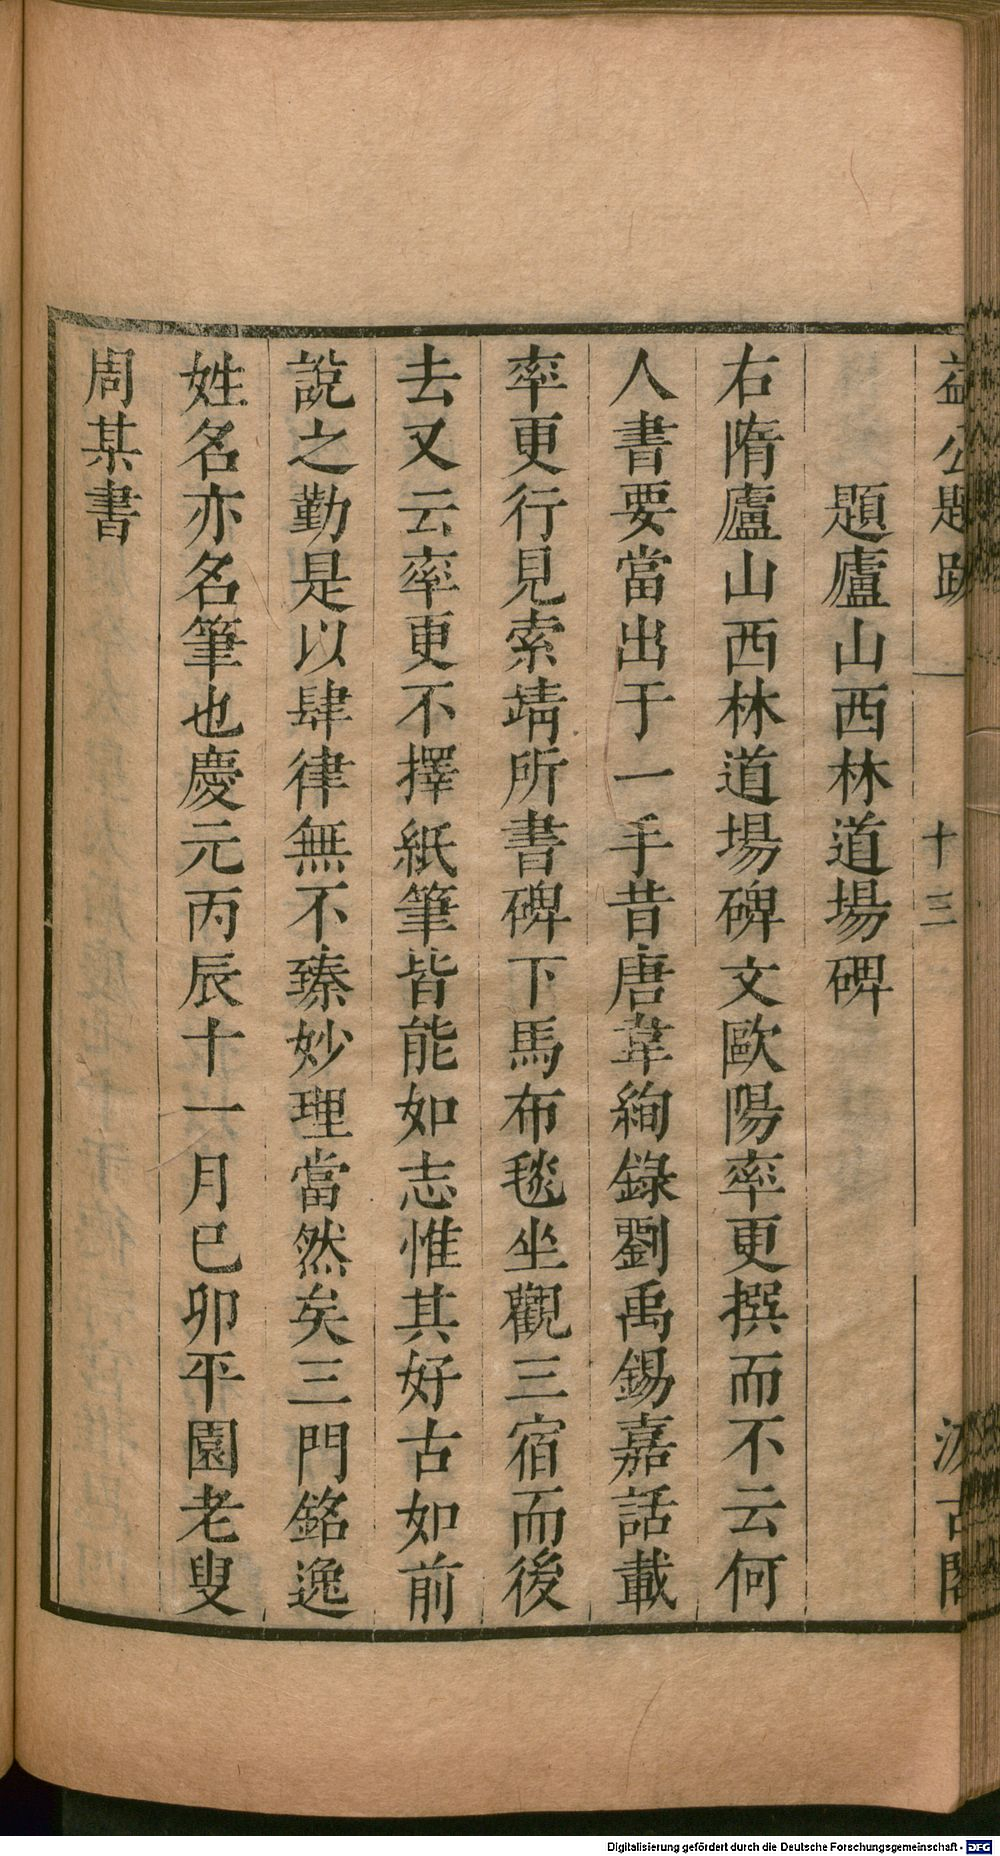 益公題跋 十三 汲古閣
題廬山西林道場碑
右隋廬山西林道場碑文歐陽率更撰而不云何
人書要當出于一手昔唐韋絢錄劉禹錫嘉話載
率更行見索靖所書碑下馬布毯坐觀三宿而後
去又云率更不擇紙筆皆能如志惟其好古如前
說之勤是以肆律無不臻妙理當然矣三門銘逸
姓名亦名筆也慶元丙辰十一月巳卯平園老叟
周某書
Digitalisierung gefördert durch die Deutsche Forschungsgemeinschaft - DFG